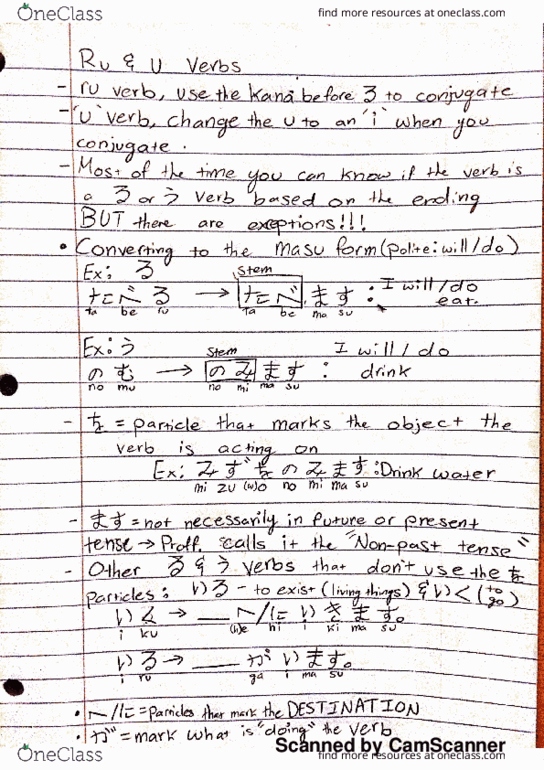 OneClass
find more resources at oneclass.com
Ru & U Verbs
- ru verb, use the kana before る to conjugate
- 'u' verb, change the u to an 'i' when you
conjugate.
- Most of the time you can know if the verb is
a る or う verb based on the ending
BUT there are exeptions!!!
• Converting to the masu form (polite: will/do)
Ex: る
Stem
たべる → たべます : I will/do
eat.
ta be ru ta be ma su
Ex: う
Stem
I will / do
のむ → のみます : drink
no mu no mi ma su
- を = particle that marks the object the
verb is acting on
Ex: みずをのみます : Drink water
mi zu (w)o no mi ma su
- ます = not necessarily in future or present
tense → Proff. calls it the "Non-past tense"
- Other る & う verbs that don't use the を
particles: いる - to exist (living things) & いく (to go)
いく → __ へ/に いきます。
i ku (h)e ni i ki ma su
いる → __ が います。
i ru ga i ma su
• へ/に = particles that mark the DESTINATION
• が = mark what is "doing" the verb
Scanned by CamScanner
OneClass
find more resources at oneclass.com